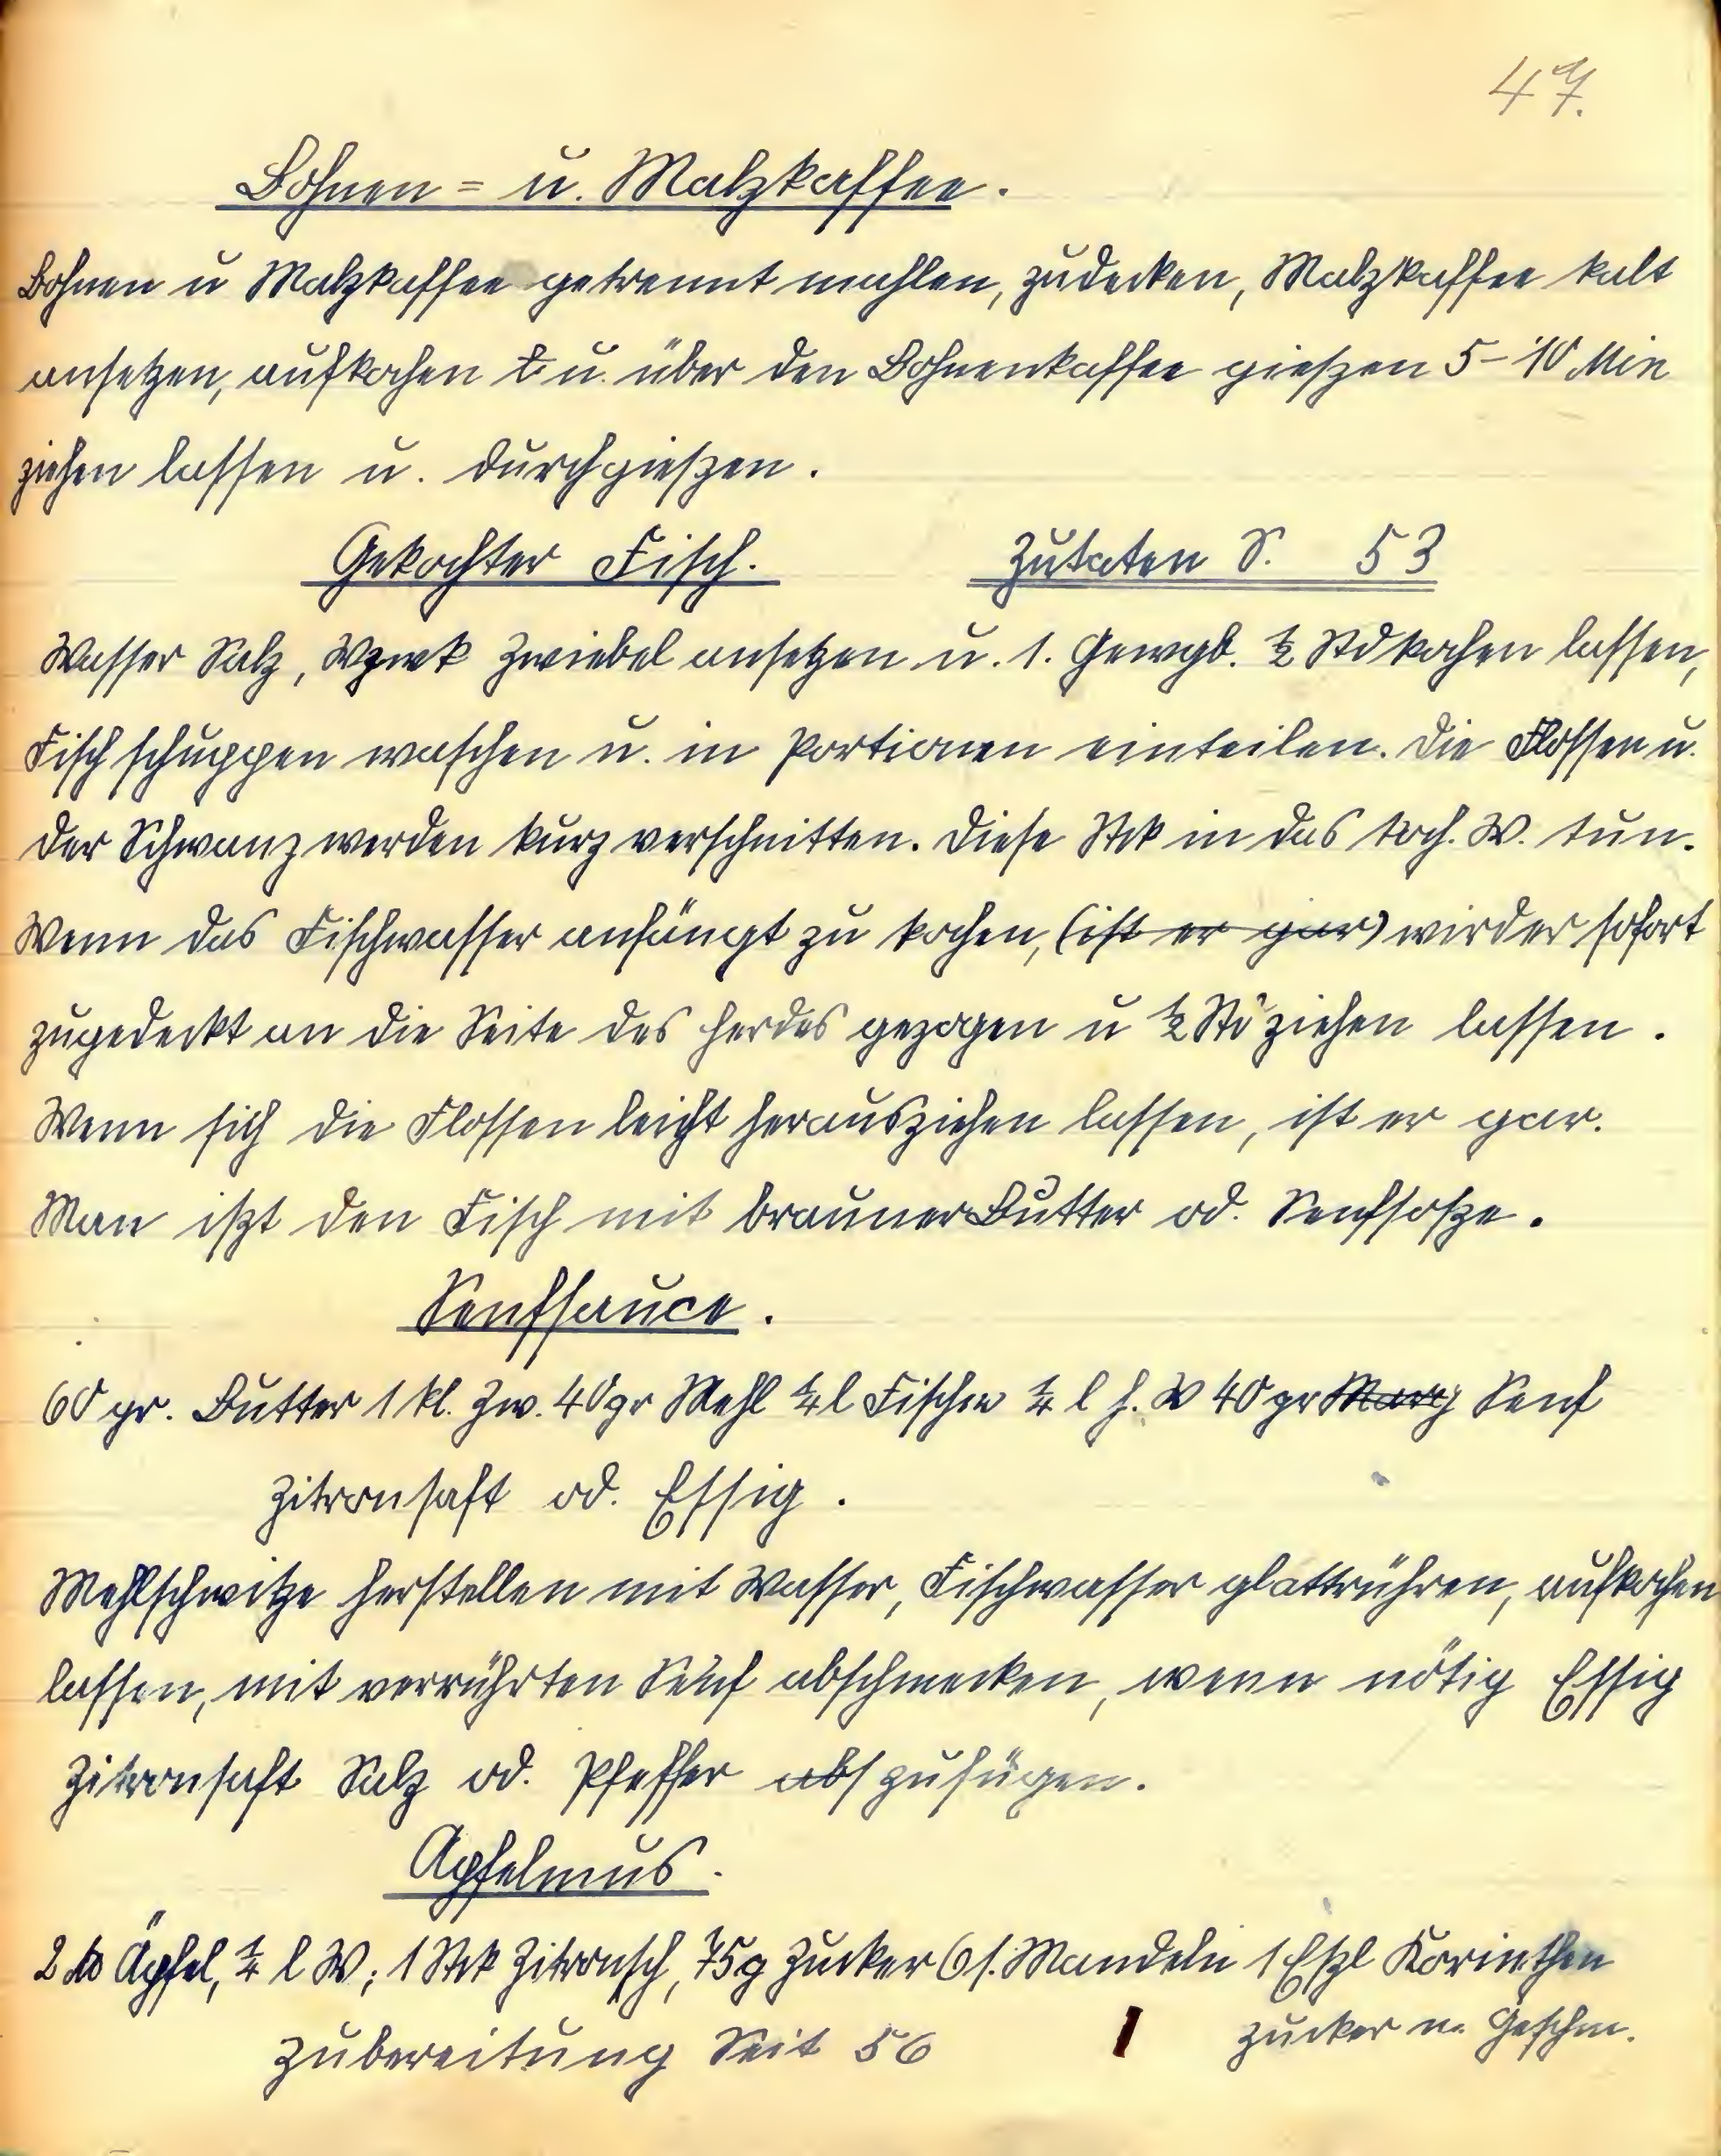 47.
Bohnen= u. Malzkaffee.
Bohnen u Malzkaffee getrennt mahlen, zudecken, Malzkaffee kalt
ansetzen, aufkochen u. über den Bohnenkaffee gießen 5-10 Min
ziehen lassen u. durchgießen.
Gekochter Fisch. Zutaten S. 53
Wasser Salz, Wzwk Zwiebel ansetzen u. 1. Gewgd. ½ Std kochen lassen,
Fisch schuppen waschen u. in Portionen einteilen. Die Flossen u.
der Schwanz werden kurz verschnitten. Diese Stck in das koch. W. tun.
Wenn das Fischwasser anfängt zu kochen, (ist er gar) wird er sofort
zugedeckt an die Seite des Herdes gezogen u ½ Std ziehen lassen.
Wenn sich die Flossen leicht herausziehen lassen, ist er gar.
Man ißt den Fisch mit brauner Butter od. Senfsoße.
Senfsauce.
60 gr. Butter 1 kl. Zw. 40 gr Mehl ¼ l Fischw ¼ l h. W 40 gr Marg Senf
Zitronsaft od. Essig.
Mehlschwitze herstellen mit Wasser, Fischwasser glattrühren, aufkochen
lassen, mit verrührten Senf abschmecken, wenn nötig Essig
Zitronsaft Salz od. Pfeffer abs zufügen.
Apfelmus.
2 ℔ Äpfel, ¼ l W; 1 Stck Zitronsch, 75g Zucker 6 s. Mandeln 1 Eßl Korinthen
Zucker n. Geschm.
Zubereitung Seit 56